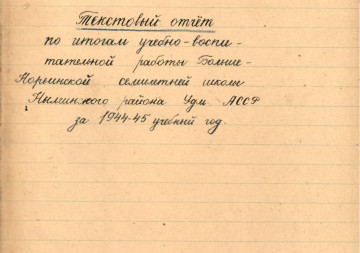 Текстовый отчёт
по итогам учебно-воспи-
тательной работы Больше-
Норьинской семилетней школы
Нылгинского района Удм. АССР
за 1944-45 учебный год.